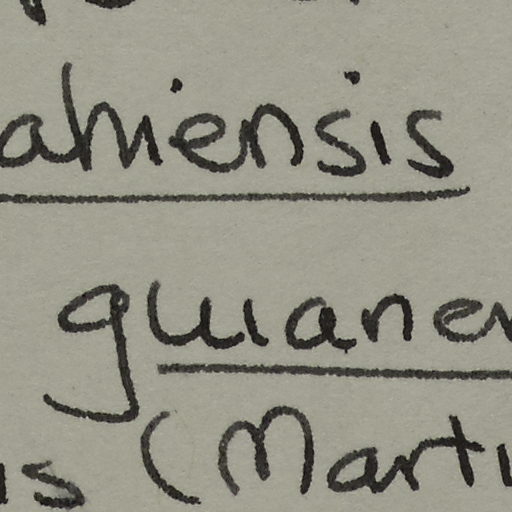 ahiensis
guianen
is (Marti